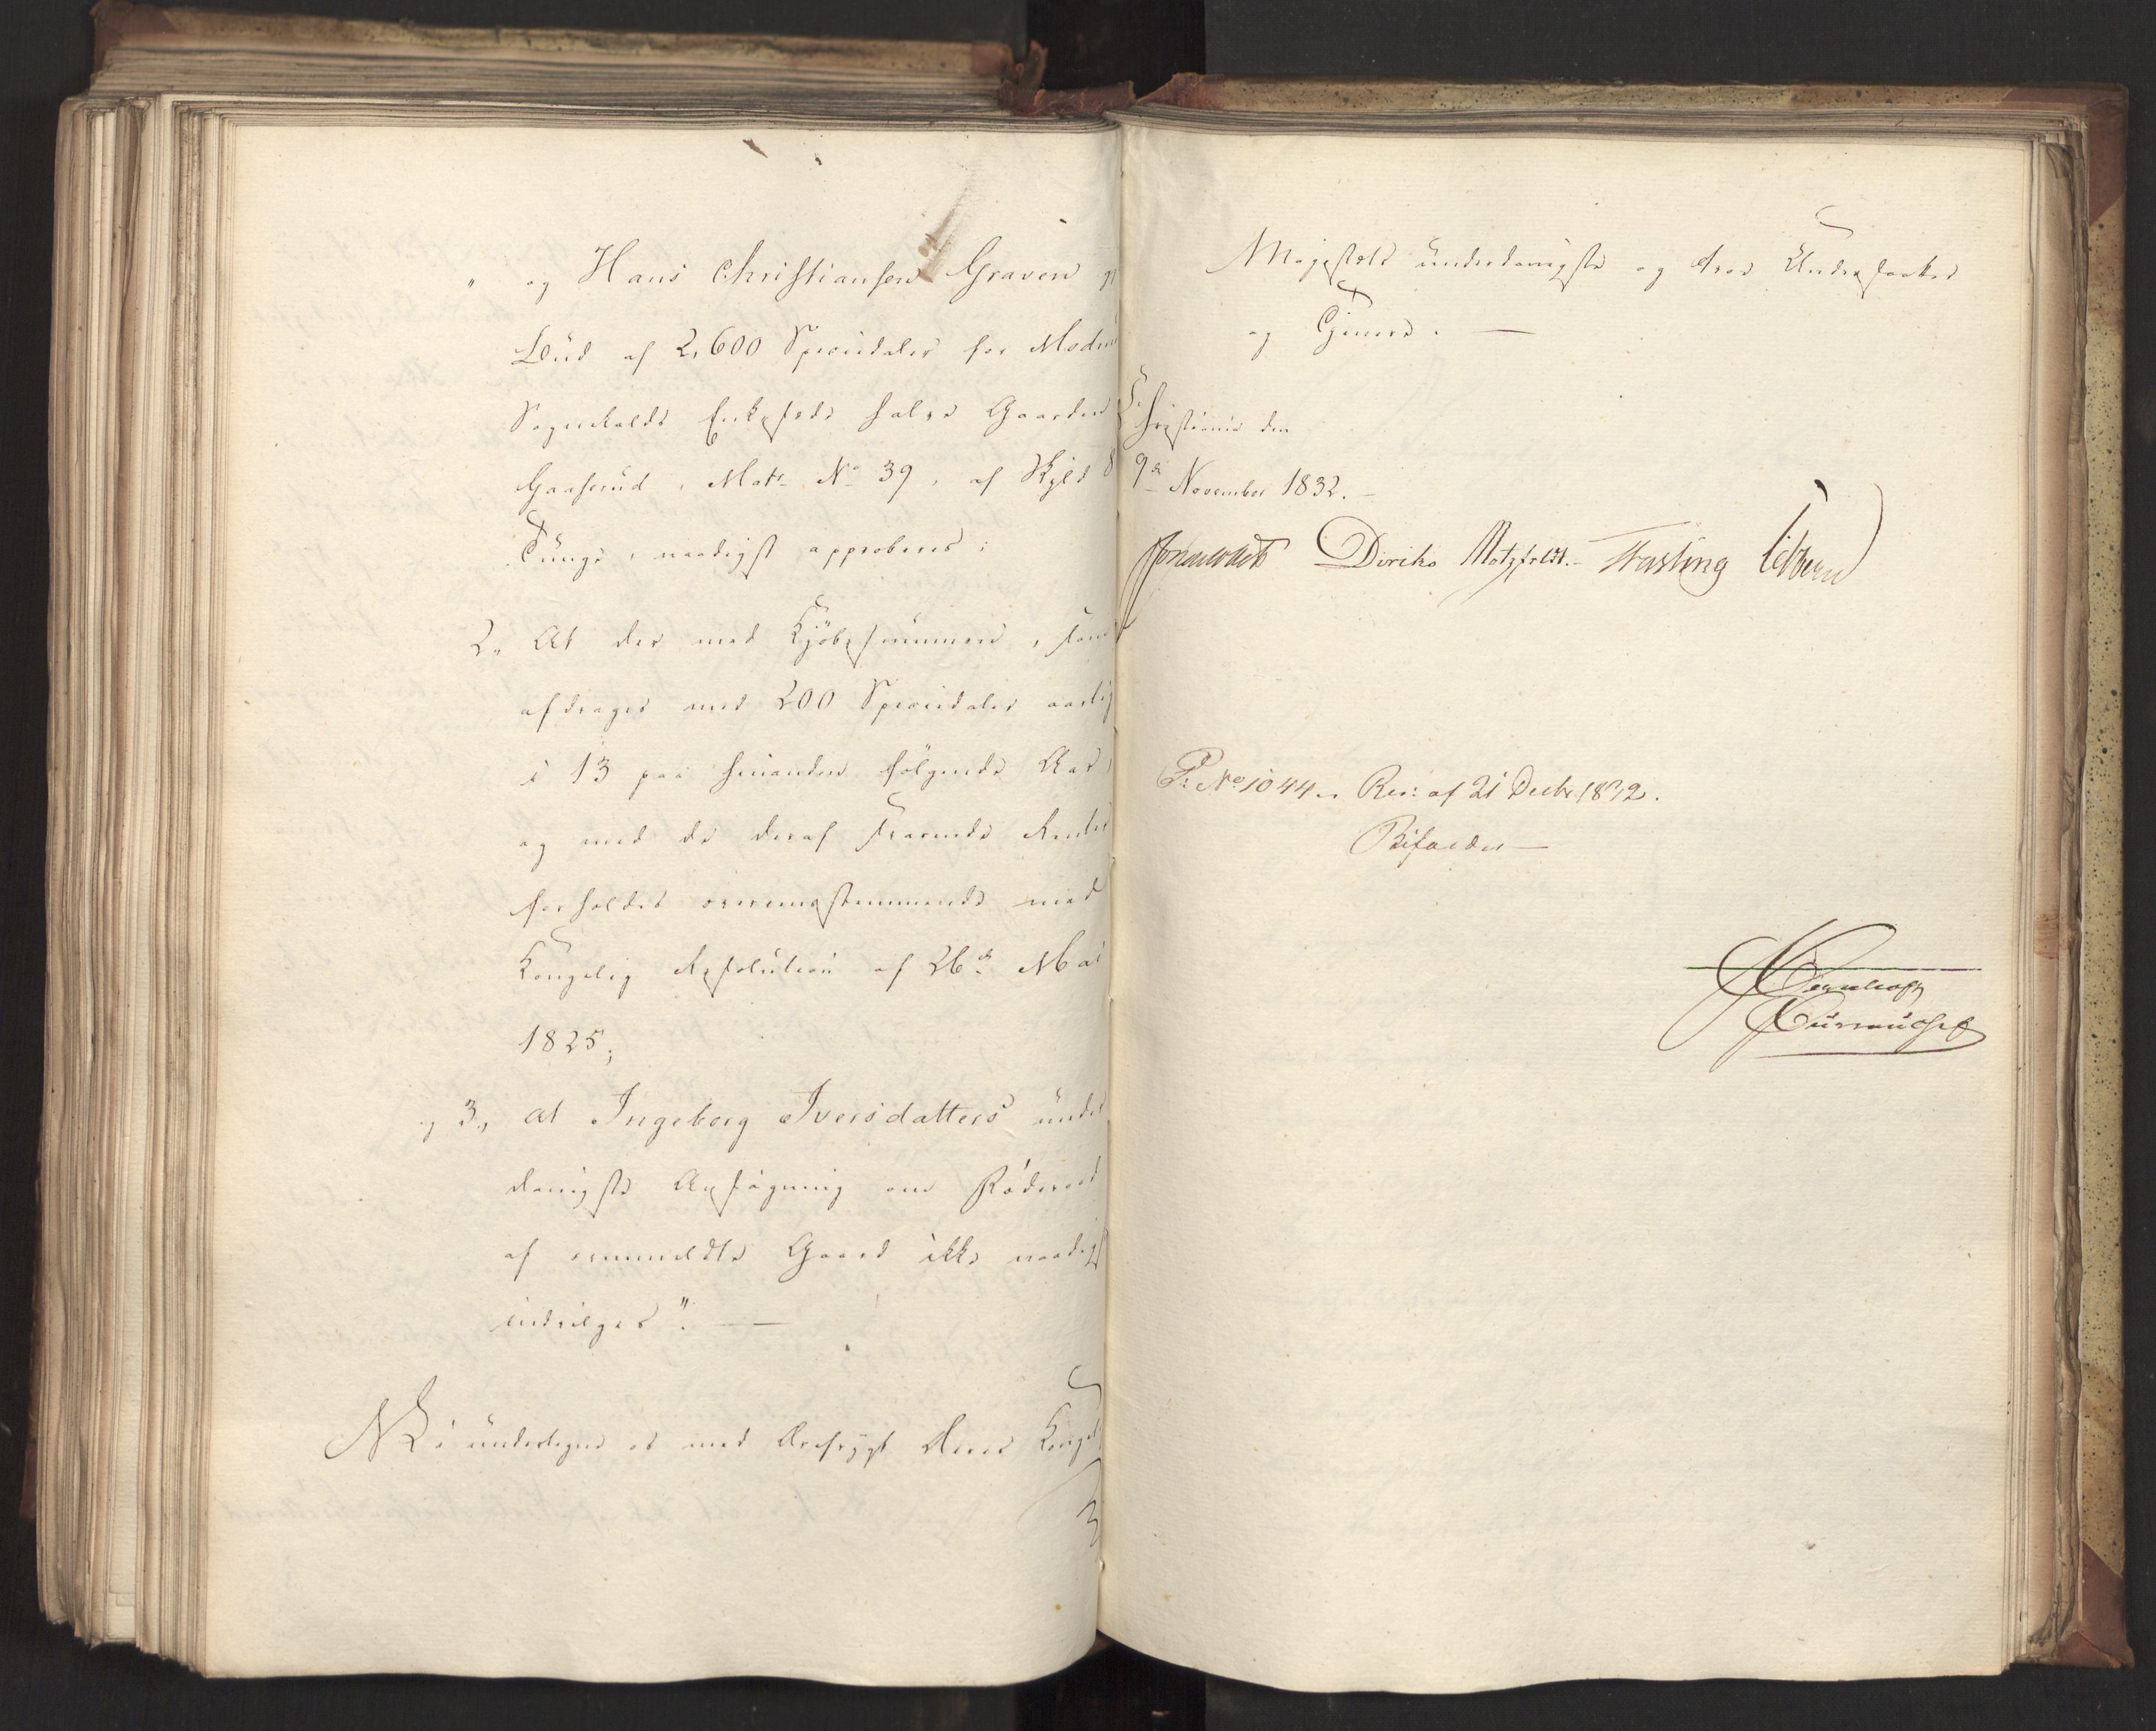 " og Hans Christiansen Graven
Bud af 2,600 Speciedaler for Modums
Sognekalds Enkesæde halve Gaarden
Gaaserud, Matr No 39, af Skyld 8
Tunge, naadigst approberes;
2, At der med Kjøbesummen, som
afdrages med 200 Speciedaler aarlig
i 13 paa hinanden følgende Aar,
og med de deraf svarende Renter
forholdes overensstemmende med
Kongelig Resolution af 26de Mai
1825;
og 3, at Ingeborg Iversdatters under
danigste Ansøgning om
af ommeldte Gaard ikke naadigst
indvilges". —
Vi undertegne os med Ærefrygt Deres Kongel
Majestæts underdanigste og troe Undersaatter
og Tjenere. —
Christiania den
9de November 1832. —
Diriks Motzfeldt. Fasting
Pr: No 1044. Res: af 21 Decbr 1832.
Bifaldes —